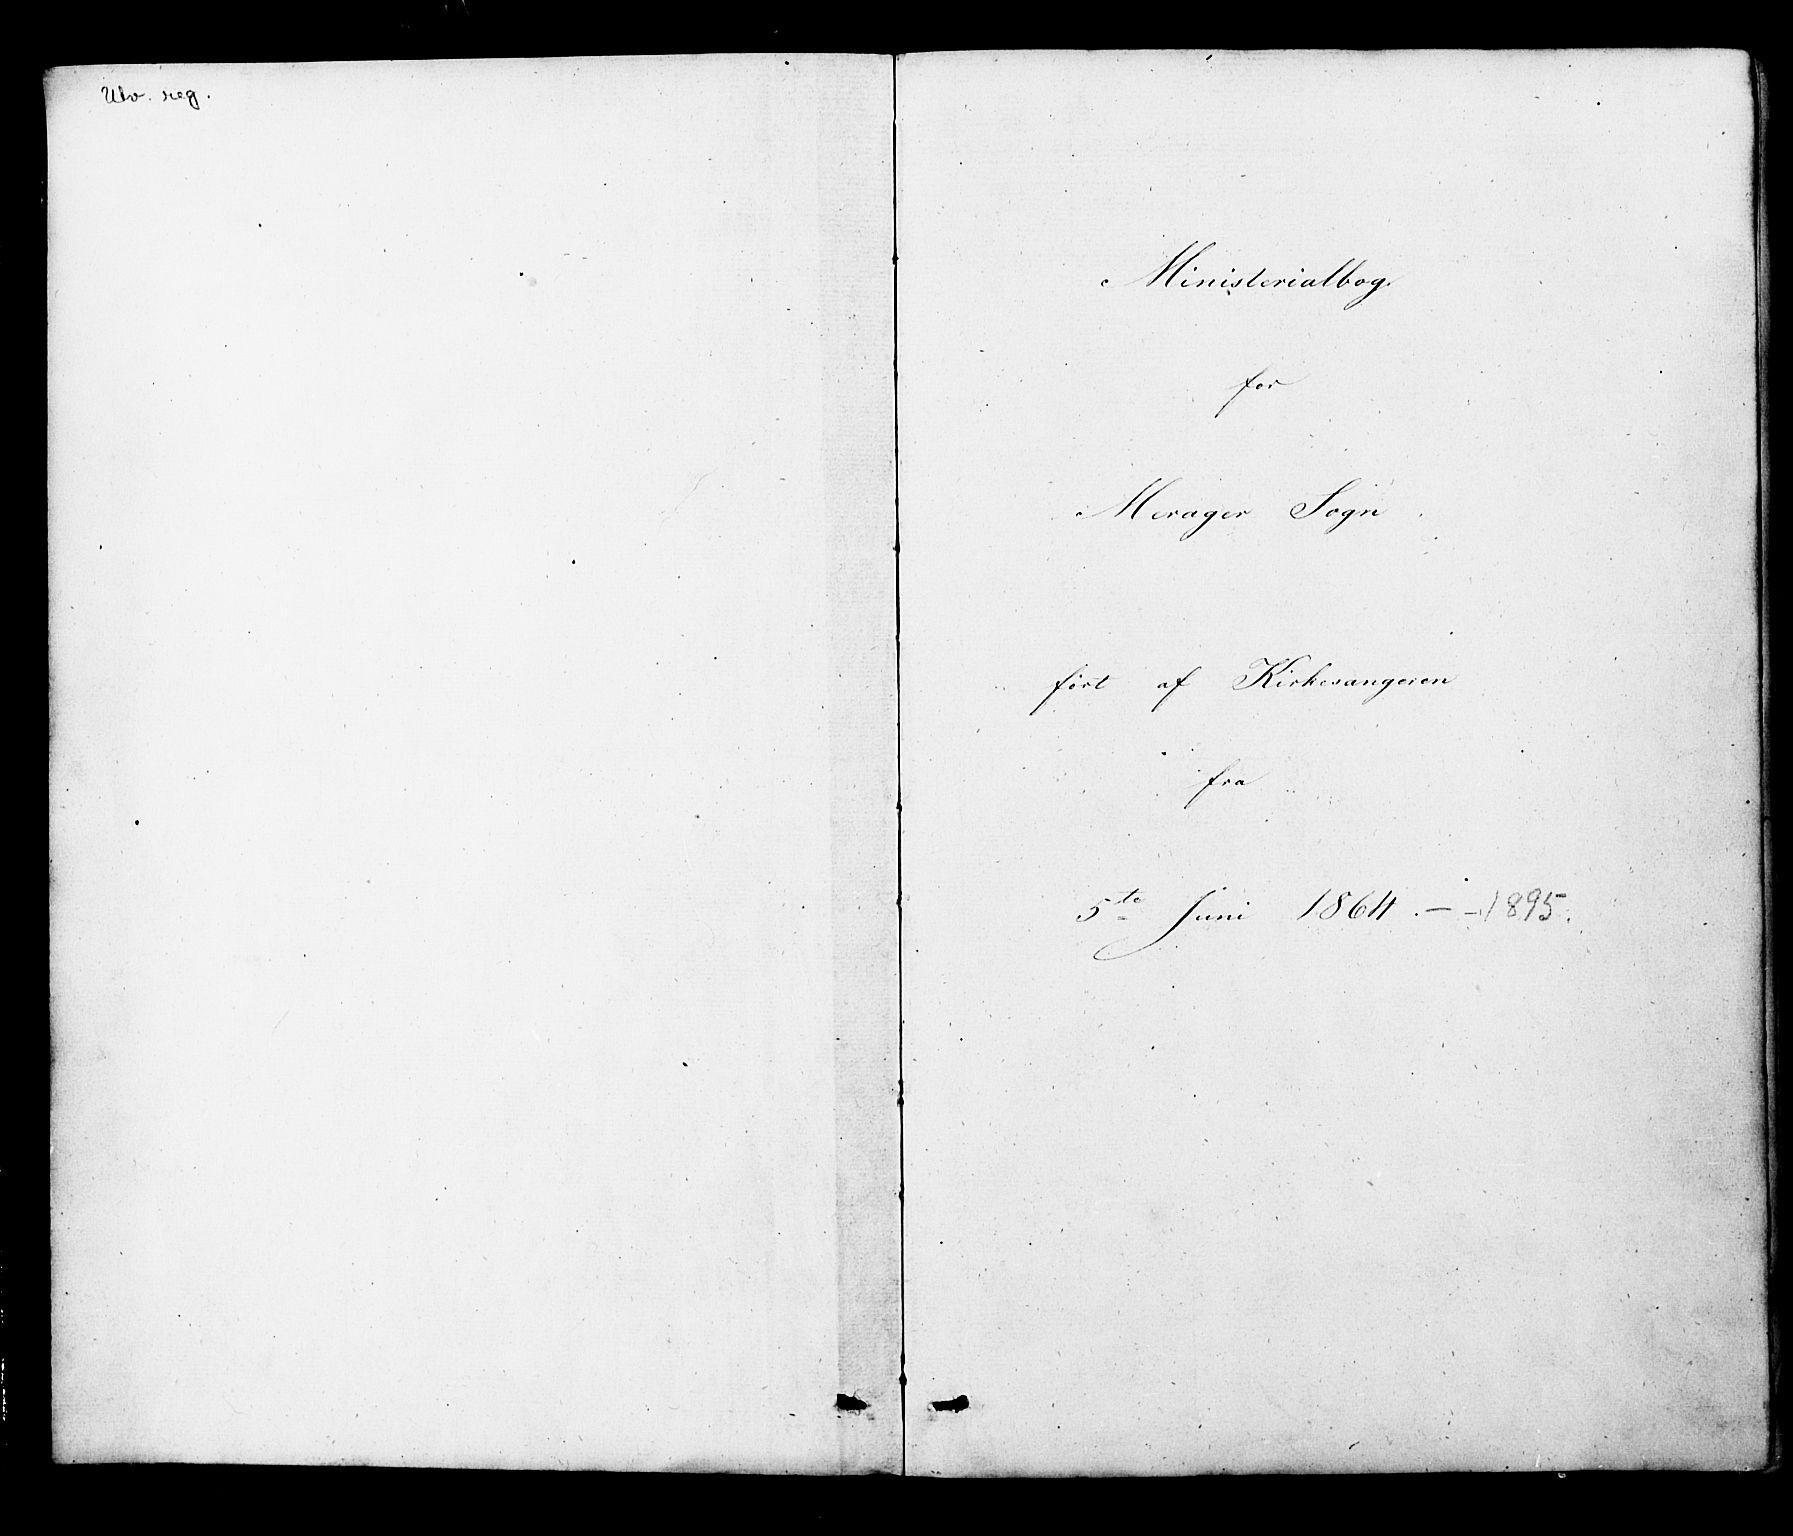 Utv. reg.
Ministerialbog
for
Merager Sogn
ført af Kirkesangeren
fra
5te Juni 1864. — - 1895.